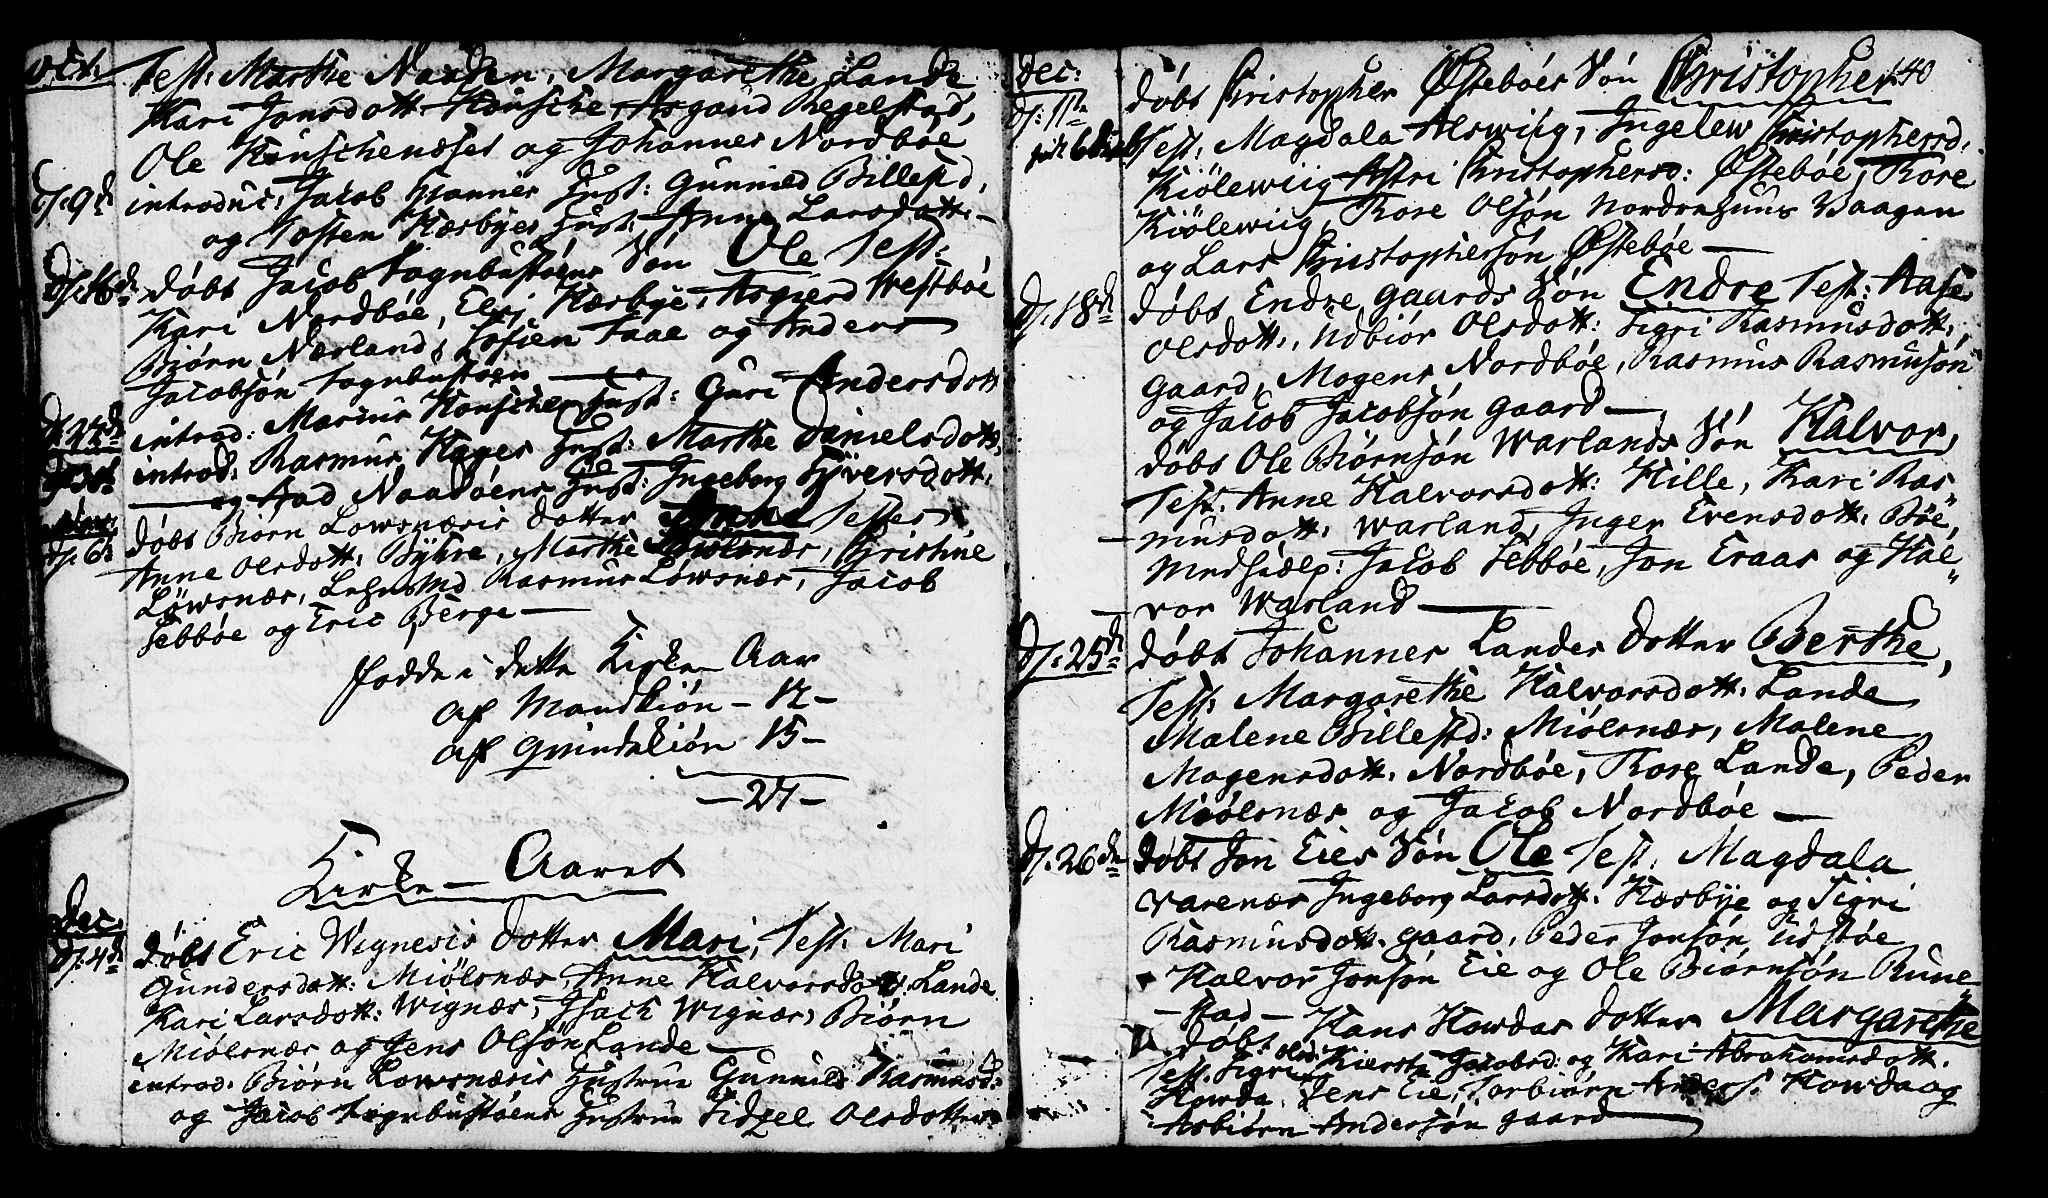 Oct: Test: Marthe Naaden, Margarethe Lande
Kari Jonsdott: Houschе, Asgaud Regelstad,
Ole Houschenæset og Johannes Nordbøe
d: 9de introduc: Jacob Hust: Gunnild Billestd,
og Tosten Hæsbyes Hust: Anne Larsdott:
d: 16de døbt Jacob Sognbustøens Søn Ole Test:
Kari Nordbøe, Elsj Hæsbye, Asgierd Westbøe
Biørn Nærland, Tosten Faae og Anders
Jacobsøn Sognbustøen
introd: Hust: Guri Andersdott
introd: Rasmus Hages Hust: Marthe Danielsdott,
og Aad Naadøens Hust: Ingeborg Siversdott:
d: 6te døbt Biørn Lowsnæsis Dotter Anne Testes
Anne Olsdott: Byhre, Marthe Løwsnæs, Christine
Løwsnæs, Rasmus Løwsnæs, Jacob
Sebbøe og Eric Berge
fødde i dette Kirke Aar
af Mandkiøn – 12 –
af Qvindekiøn 15 –
– 27 –
Kirke – Aaret
Dec:
d: 4de døbt Eric Wignesis Dotter Mari, Test: Mari
Gundersdott: Miølsnæs, Anne Halvorsdott. Lande
Kari Larsdott: Wignæs, Isach Wignæs, Biørn
Miølsnæs og Jens Olsøn Lande
introd: Biørn Lowsnæsis Hustrue Gunnild Rasmusd:
og Jacob Sognbustøens Hustrue Sidzel Olsdotter
140
Dec:
d: 11te døbt Christopher Østebøes Søn Christopher
Test: Magdala Alswiig, Ingelew Christophersd.
Kiølewiig Astri Christophersd: Østebøe, Tore
Kiölewiig, Tore Olsøn Nordrehuus Vaagen
og Lars Christophersøn Østebøe
d: 18de døbt Endre Gaards Søn Endre Test: Aase
Olsdott:, Udbiør Olsdott: Sigri Rasmusdott:,
Gaard, Mogens Nordbøe, Rasmus Rasmusøn
og Jacob Jacobsøn Gaard
døbt Ole Biørnsøn Warlands Søn Halvor,
Test: Anne Halvorsdott: Hille, Kari Ras
musdott: Warland, Inger Evensdott: Bøe,
Medhielp: Jacob Sebbøe, Jon Eraas og Hal
vor Warland
d: 25de døbt Johannes Landes Dotter Berthe,
Test: Margarethe Halvorsdott: Lande
Malene Billestd: Miølsnæs, Malene
Mogensdott: Nordbøe, Tore Lande, Peder
Miølsnæs og Jacob Nordbøe
d: 26de døbt Jon Eies Søn Ole Test: Magdala
Varenæs Ingeborg Larsdott: Hæsbye og Sigri
Rasmusdott: Gaard, Peder Jonsøn Udstøe
Halvor Jonsøn Eie og Ole Biørnsøn Rune
stad –
døbt Hans Howdas Dotter Margarethe
Test. Sigri Olsd: Kierste Jacobsd: og Kari Abrahamsdott.
Howda, Jens Eie, Torbiørn Anders. Howda og
Asbiørn Andersøn Gaard